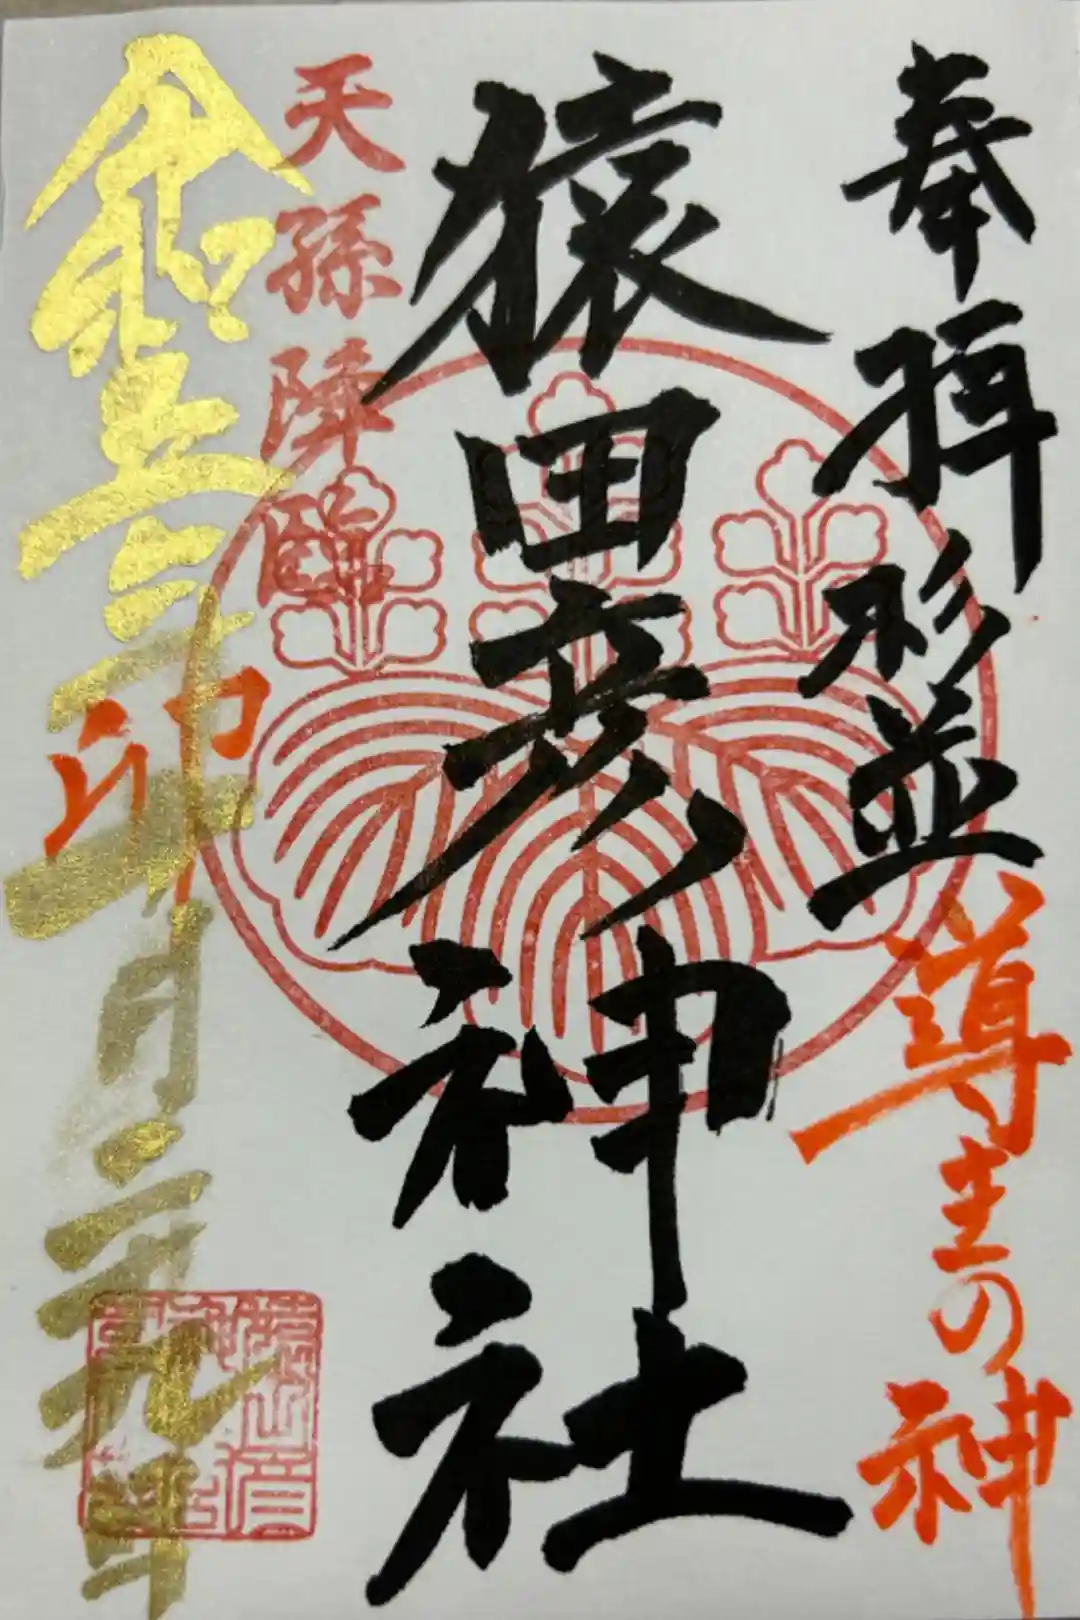 奉拝 杉並
導きの神
猿田彦神社
天孫降臨
令和五年 月二九日
卯